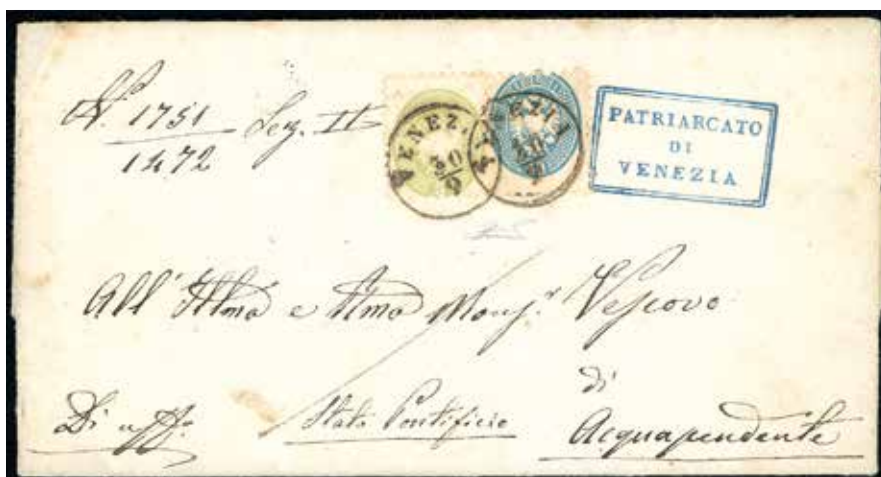 N. 1751 Sez. II
1472
VENEZIA
30
9
VENEZIA
30
9
PATRIARCATO
DI
VENEZIA
All' Illmo e Rmo Monsr. Vescovo
di
Di uffo. Stato Pontificio Acquapendente